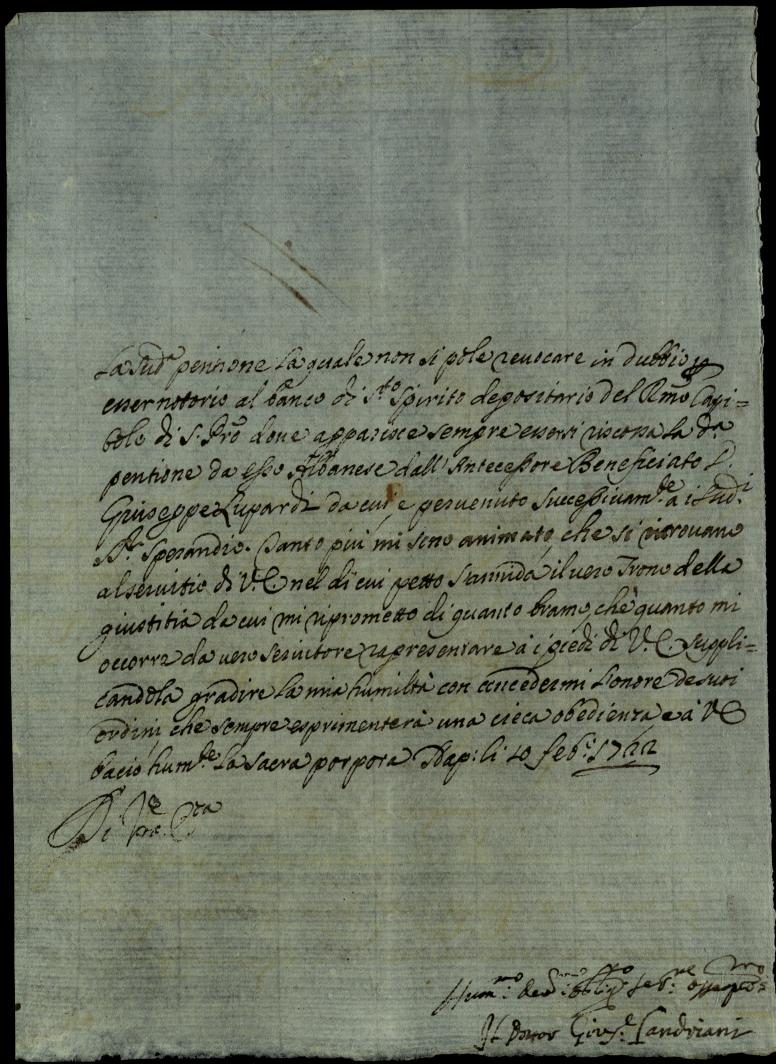 La sud.ª pentione la quale non si pole reuocare in dubbio p
esser notorio al banco di S.to Spirito depositario del R.mo Capi=
tolo di S. P.ro doue apparisce sempre essersi riscossa la d.ª
pentione da esso Albanese dall'Antecessore Beneficiato D.
Giuseppe Lupardi da cui è peruenuto successiuam.te a i sud.i
Sperandio. Tanto più mi sono animato, che si ritrouano
al seruitio di V. E nel di cui petto s'annida il uero Trono della
giustitia da cui mi riprometto di quanto bramo, che quanto mi
occorre da uero seruitore rapresentare à i piedi di V. E. suppli=
candola gradire la mia humiltà con concedermi l'onore de suoi
ordini che sempre esprimenterà una cieca obedienza e à V E
bacio hum.te la sacra porpora Nap: li 10 feb.º 1722
Di V.re E.za
Hum.mo deu.mo obblig.mo ser.re
Il Dottor Gius.e Landriani